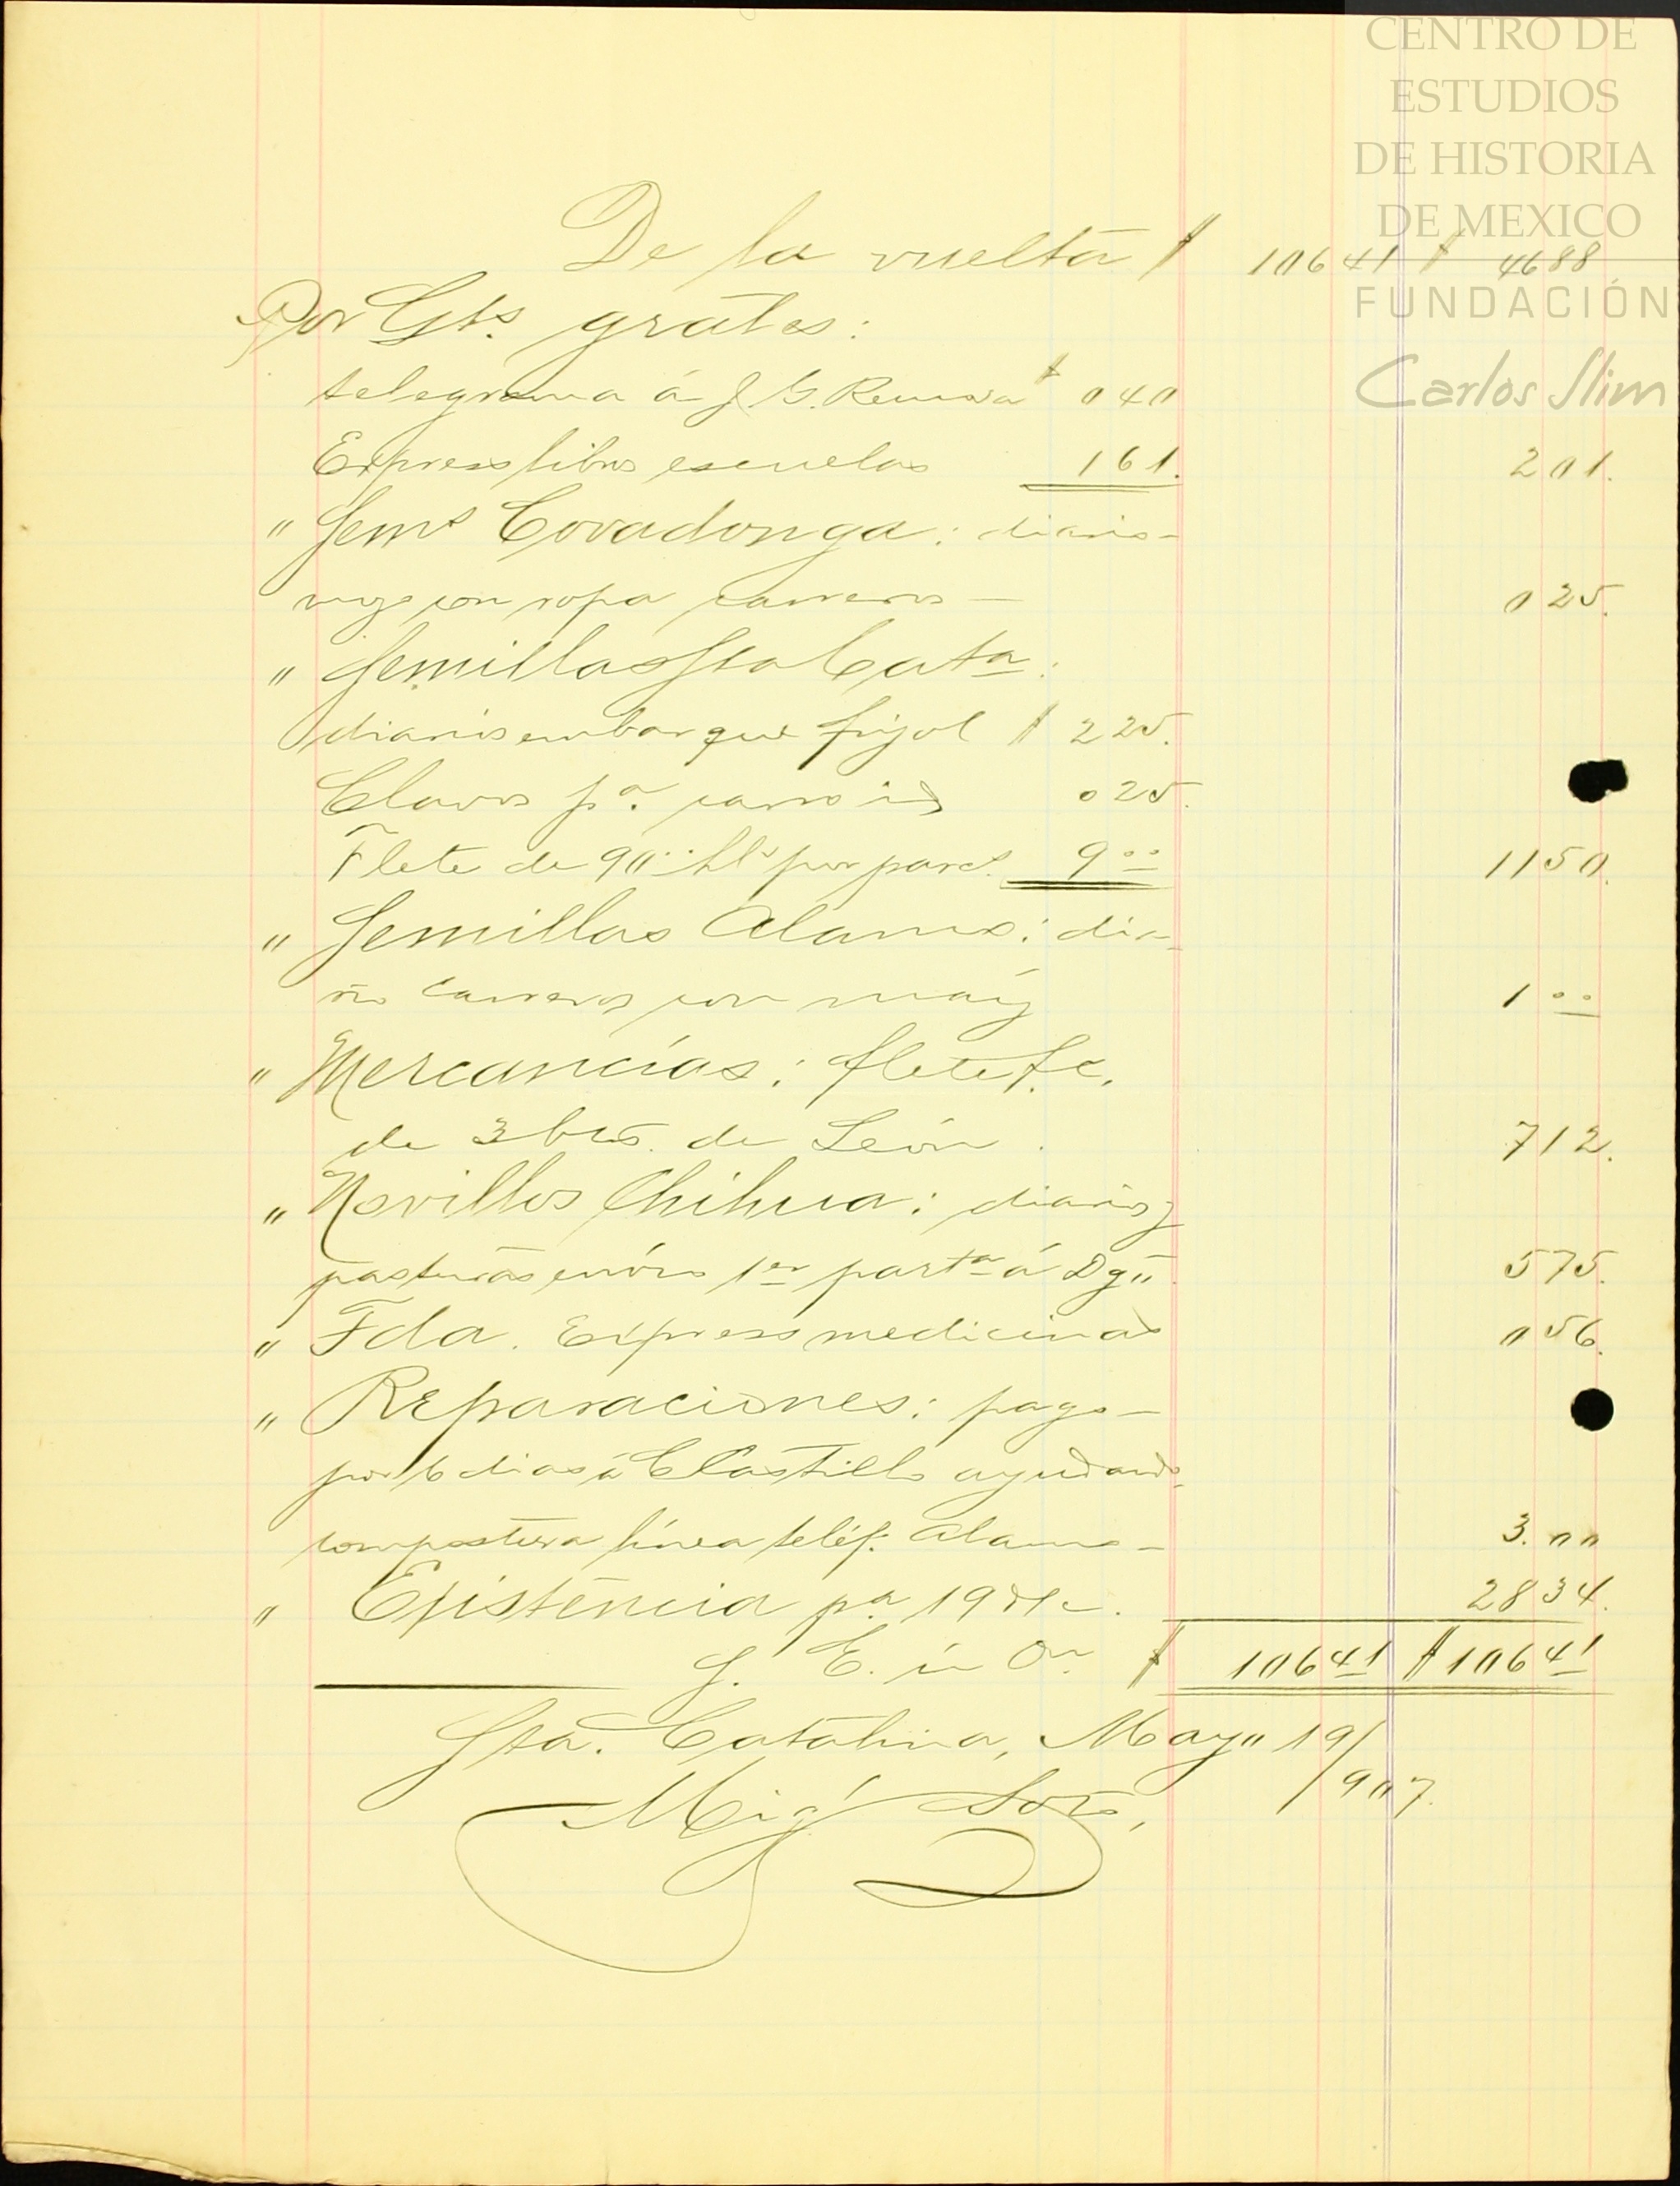 CENTRO DE
ESTUDIOS
DE HISTORIA
DE MEXICO
FUNDACIÓN
Carlos Slim
De la vuelta $ 10641 $ 4688
Por Gts. grales:
telegrama á J. G. $ 040
Express libros escuelas 161. 201.
" Sems Covadonga: diario
con ropa carreros — 025.
" Semillas Sta Cata:
diarios embarque frijol $ 225.
Clavos pa. carro 025.
Flete de 90 por 9 00 1150.
" Semillas Alamo: dia-
rio carreros con maíz 1 00
" Mercancías: flete f.c.
de 3 btos. de León. 712.
" Novillos Chihua: diarios y
pasturas envío 1er parta á Dgo. 575.
" Fda. Express medicinas 056.
" Reparaciones: pago —
por 6 dias á C Castillo ayudando
compostura línea teléf. Alamo — 3.00
" Existencia pa 19 2834.
S. E. ú On. $ 10641 $ 10641
Sta. Catalina, Mayo 19/
/907.
Migl